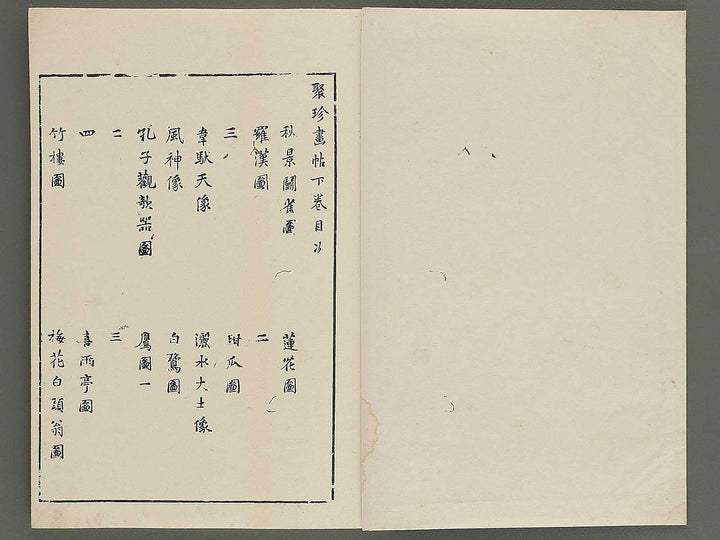 聚珍畫帖下卷目次
秋景鬪雀圖
蓮花圖
羅漢圖
二
三
甜瓜圖
韋馱天像
灑水大士像
風神像
白鷺圖
孔子觀欹器圖
鷹圖一
二
三
四
喜雨亭圖
竹樓圖
梅花白頭翁圖